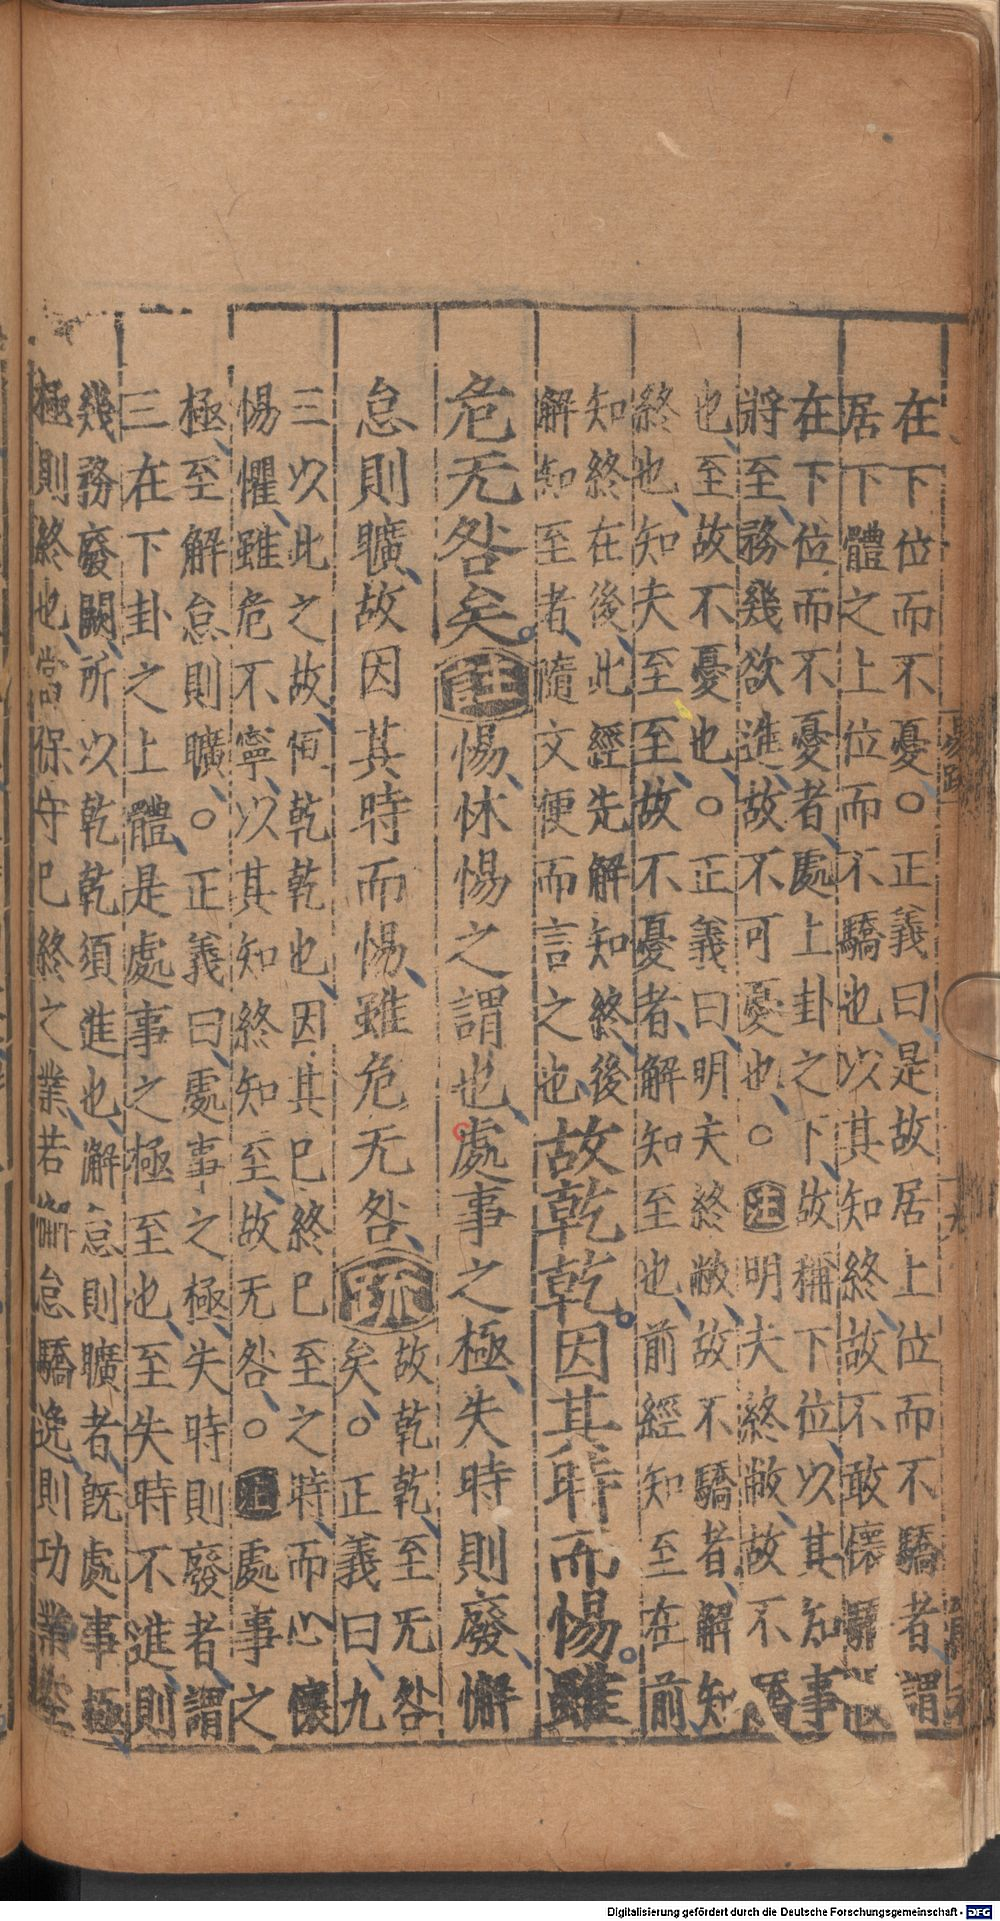 在下位而不憂○正義曰是故居上位而不驕者謂
居下體之上位而不驕也以其知終故不敢懷驕
在下位而不憂者處上卦之下故稱下位以其知事
將至務幾欲進故不可憂也○注明夫終敝故不驕
也至故不憂也○正義曰明夫終敝故不驕者解知
終也知夫至至故不憂者解知至也前經知至在前
知終在後此經先解知終後
解知至者隨文便而言之也
故乾乾。因其時而惕。雖
危无咎矣。注惕怵惕之謂也處事之極失時則廢懈
怠則曠故因其時而惕雖危无咎疏
故乾乾至无咎
矣○正義曰九
三以此之故恒乾乾也因其已終已至之時而心懷
惕懼雖危不寧以其知終知至故无咎○注處事之
極至解怠則曠○正義曰處事之極失時則廢者謂
三在下卦之上體是處事之極至也至失時不進則
幾務廢闕所以乾乾須進也懈怠則曠者既處事極
極則終也當保守已終之業若懈怠驕逸則功業空
Digitalisierung gefördert durch die Deutsche Forschungsgemeinschaft - DFG